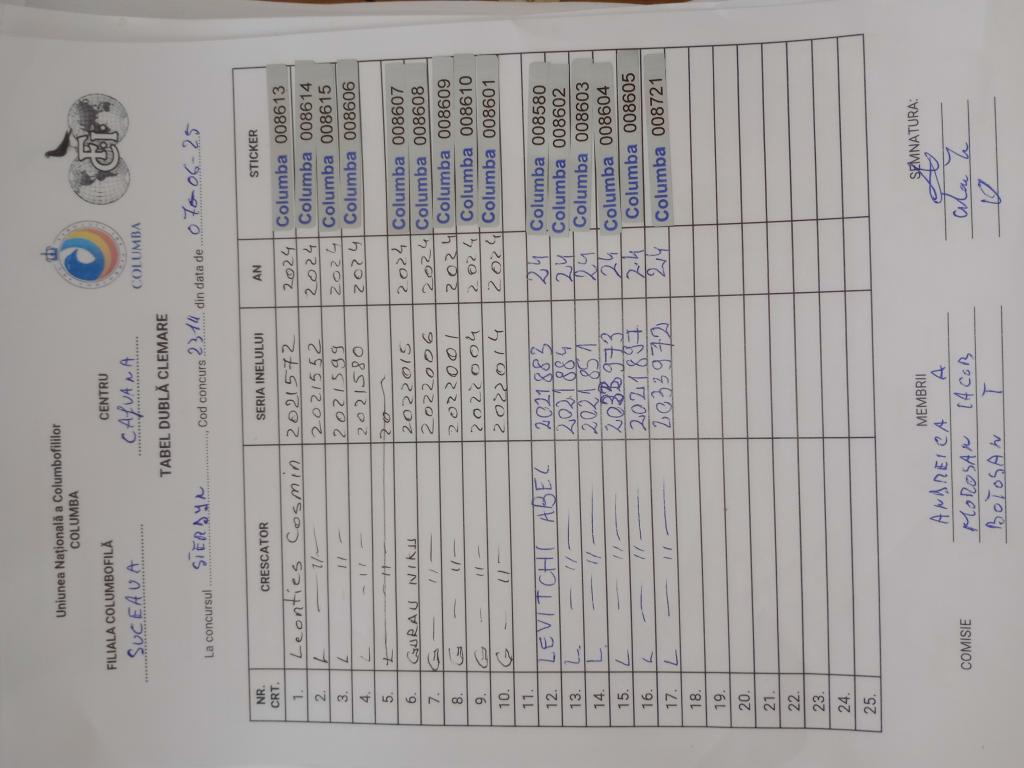 Uniunea Națională a Columbofililor
COLUMBA
FILIALA COLUMBOFILĂ CENTRU
SUCEAVA CAJVANA
COLUMBA
TABEL DUBLĂ CLEMARE
La concursul SIERDYN, Cod concurs 2314 din data de 07-06-25
NR. CRT. CRESCATOR SERIA INELULUI AN STICKER
1. Leonties Cosmin 2021572 2024 Columba 008613
2. L — 11 — 2021552 2024 Columba 008614
3. L — 11 — 2021599 2024 Columba 008615
4. L — 11 — 2021580 2024 Columba 008606
5. L — 11 — 20
6. GURAU NIKU 2022015 2024 Columba 008607
7. G — 11 — 2022006 2024 Columba 008608
8. G — 11 — 2022001 2024 Columba 008609
9. G — 11 — 2022004 2024 Columba 008610
10. G — 11 — 2022014 2024 Columba 008601
11.
12. LEVITCHI ABEL 2021883 24 Columba 008580
13. L — 11 — 2021884 24 Columba 008602
14. L — 11 — 2021851 24 Columba 008603
15. L — 11 — 24 Columba 008604
16. L — 11 — 2021897 24 Columba 008605
17. L — 11 — 2033972 24 Columba 008721
18.
19.
20.
21.
22.
23.
24.
25.
COMISIE MEMBRII SEMNATURA:
ANDREICA A
MOROSAN IACOB
BOTOSAN T